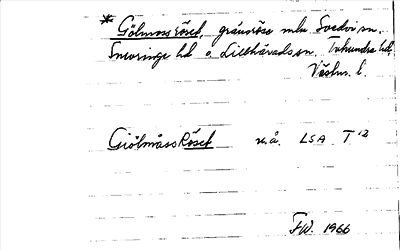 * Gölmossröset, gränsröse mln Svedvi sn.
Snevringe hd o. Lillhärads sn. Tuhundra hd.
Västm. l.
Giölmåss Röset u.å. LSA T 12
FW. 1966